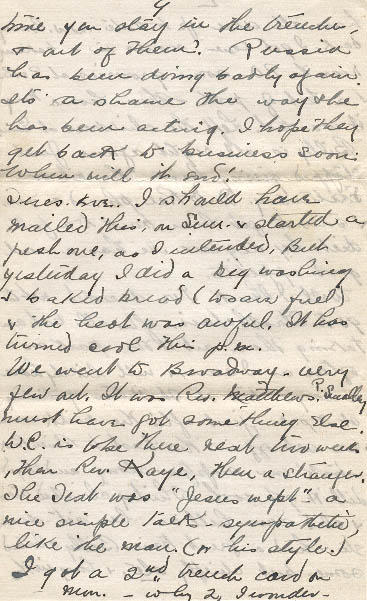 4
time you stay in the trenches,
& out of them? Russia
has been doing badly again.
It's a shame the way she
has been acting. I hope they
get back to business soon.
When will it end!
Tues. Eve. I should have
mailed this, on Sun. & started a
fresh one, as I intended, but
yesterday I did a big washing
& baked bread (to save fuel)
& the heat was awful. It has
turned cool this p.m.
We went to Broadway - very
few out. It was Rev. Matthews. P. Smalley
must have got something else.
W.C. is to be there next two weeks
, then Rev. Kaye, then a stranger.
The Text was "Jesus wept" a
nice simple talk - sympathetic,
like the man. (or his style.)
I got a 2nd trench card on
Mon. - why 2, I wonder -